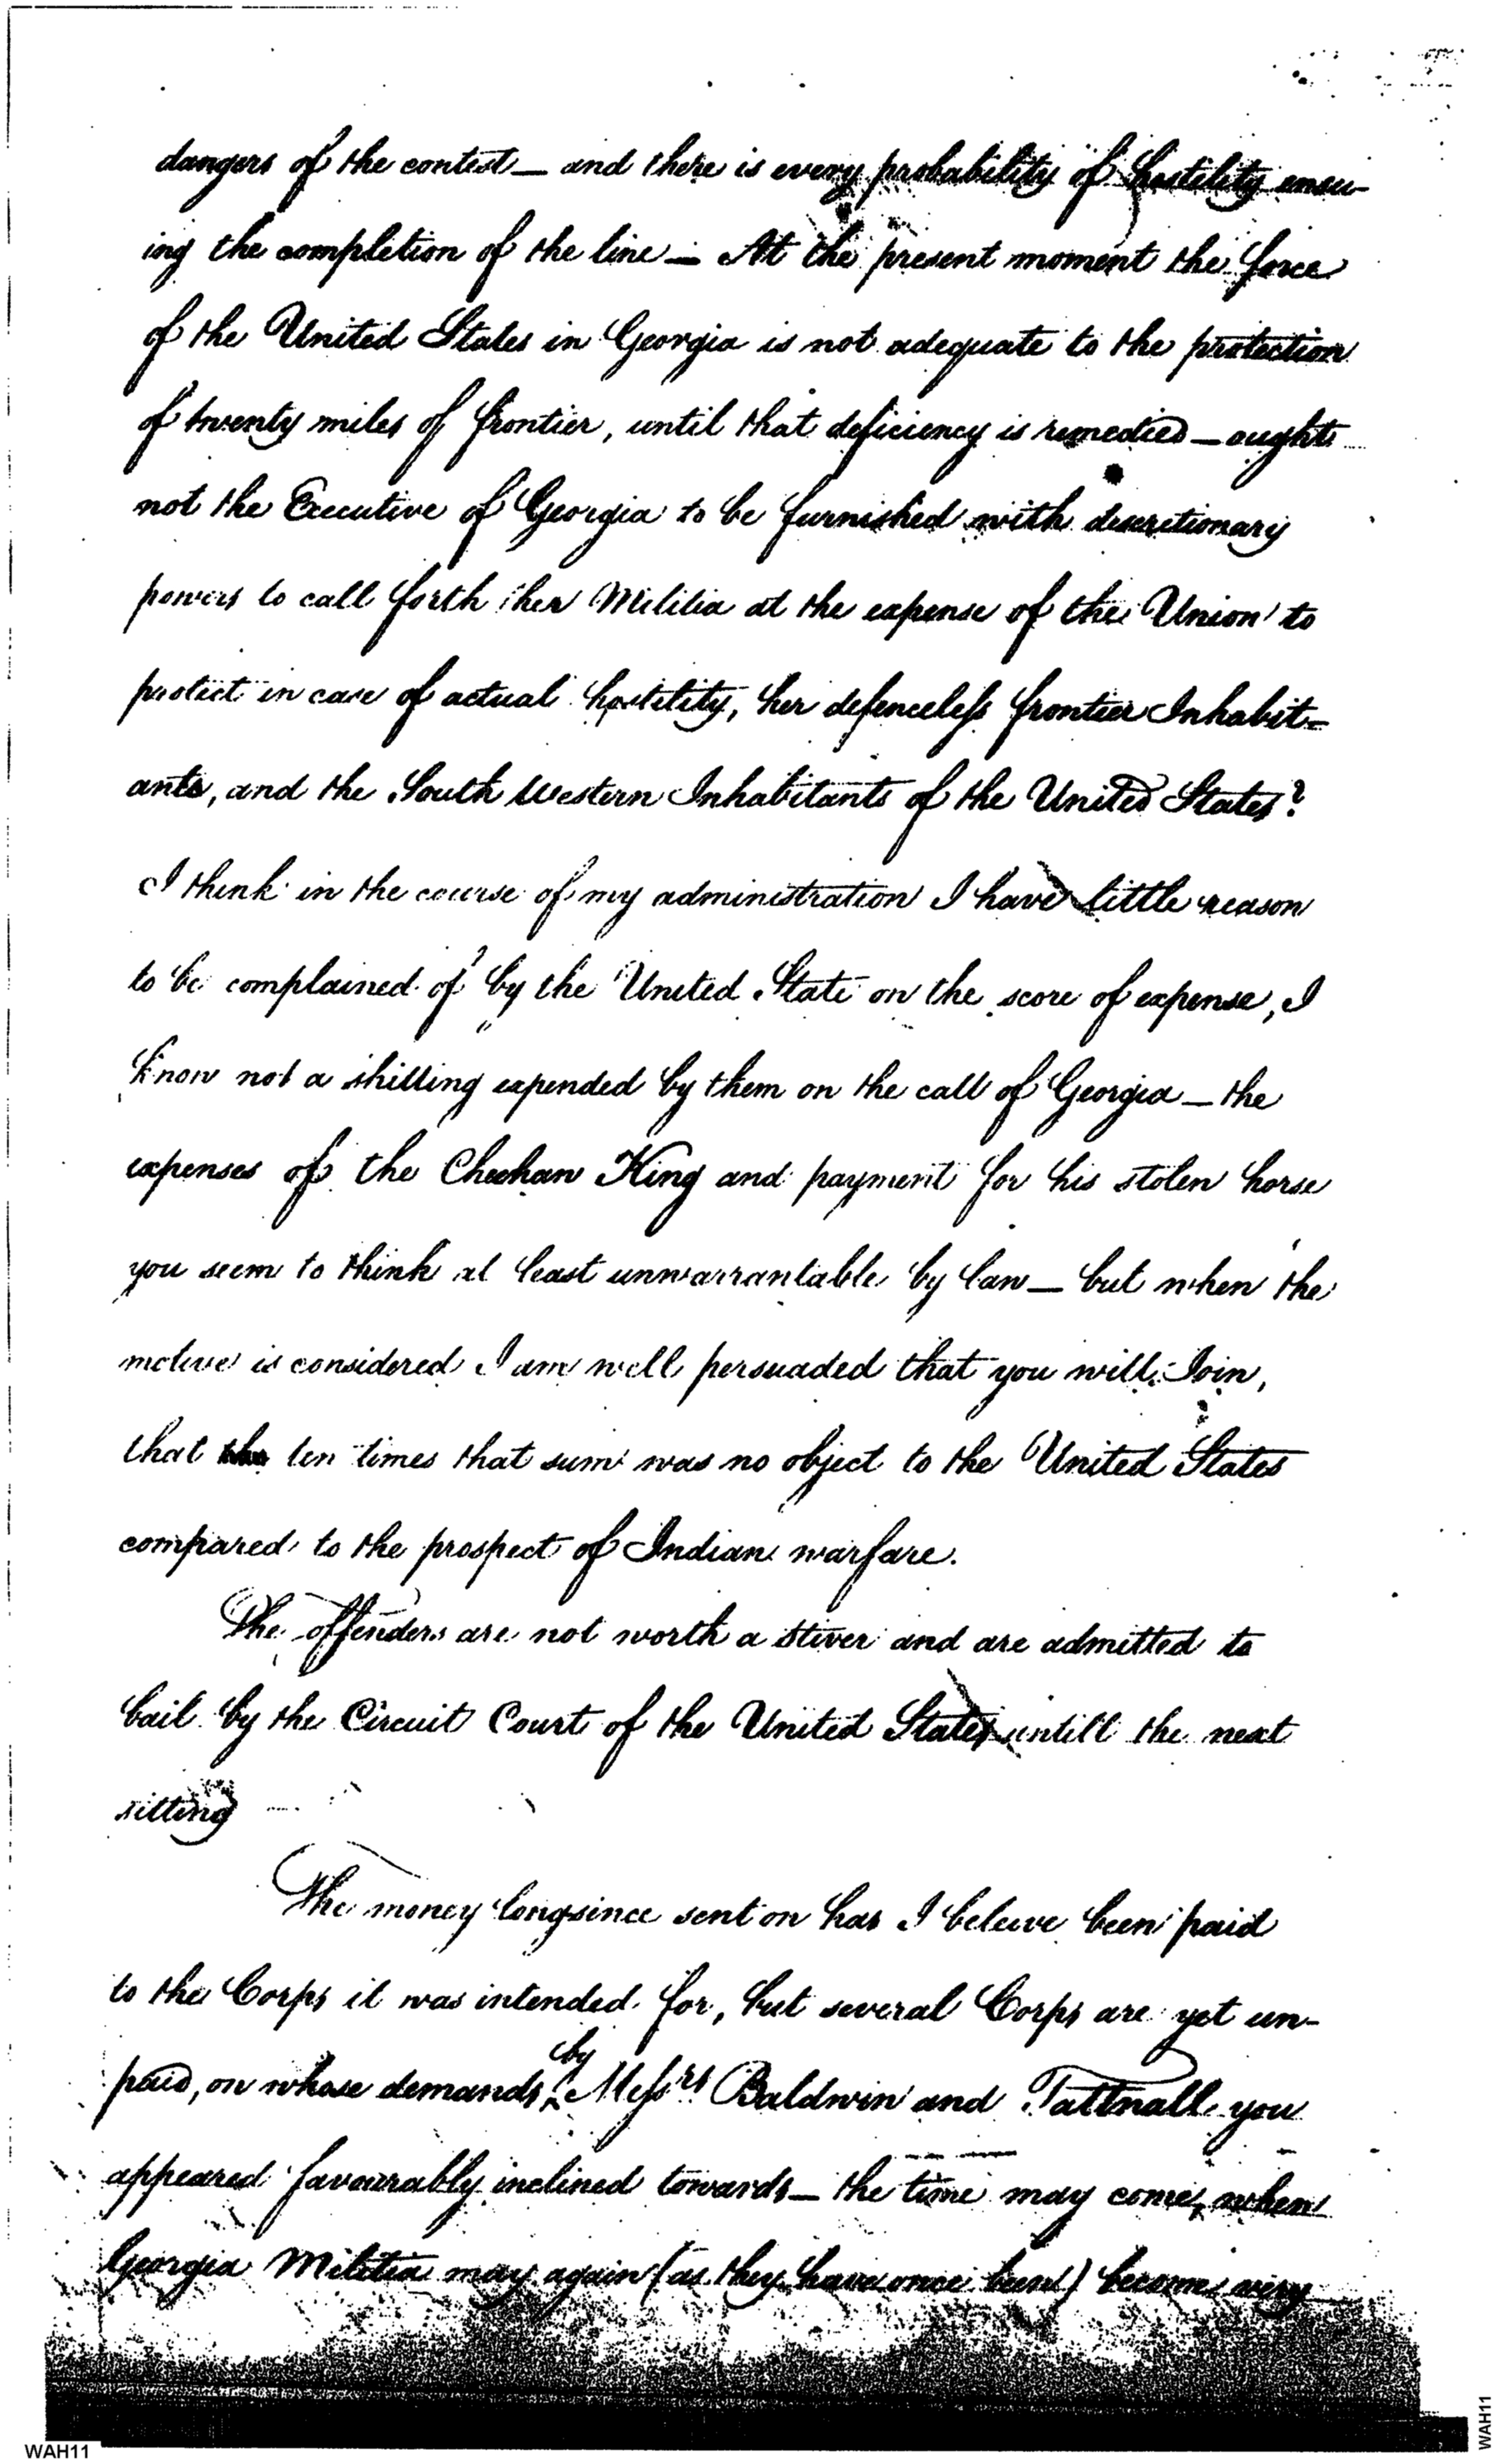 dangers of the contest — and there is every probability of hostility ensu-
ing the completion of the line — At the present moment the force
of the United States in Georgia is not adequate to the protection
of twenty miles of frontier, until that deficiency is remedied — ought
not the Executive of Georgia to be furnished with discretionary
powers to call forth her Militia at the expense of the Union to
protect in case of actual hostility, her defenceless frontier Inhabit-
ants, and the South Western Inhabitants of the United States?
I think in the course of my administration I have little reason
to be complained of by the United State on the score of expense, I
know not a shilling expended by them on the call of Georgia — the
expenses of the Cheehan King and payment for his stolen horse
you seem to think at least unwarrantable by law — but when the
motive is considered I am well persuaded that you will Join,
that ten times that sum was no object to the United States
compared to the prospect of Indian warfare.
The offenders are not worth a stiver and are admitted to
bail by the Circuit Court of the United States untill the next
sitting
The money long since sent on has I beleive been paid
to the Corps it was intended for, but several Corps are yet un-
paid, on whose demands by Messrs Baldwin and Tattnall you
appeared favourably inclined towards — the time may come, when
Georgia Militia may again (as they have once been) become very
WAH11
WAH11